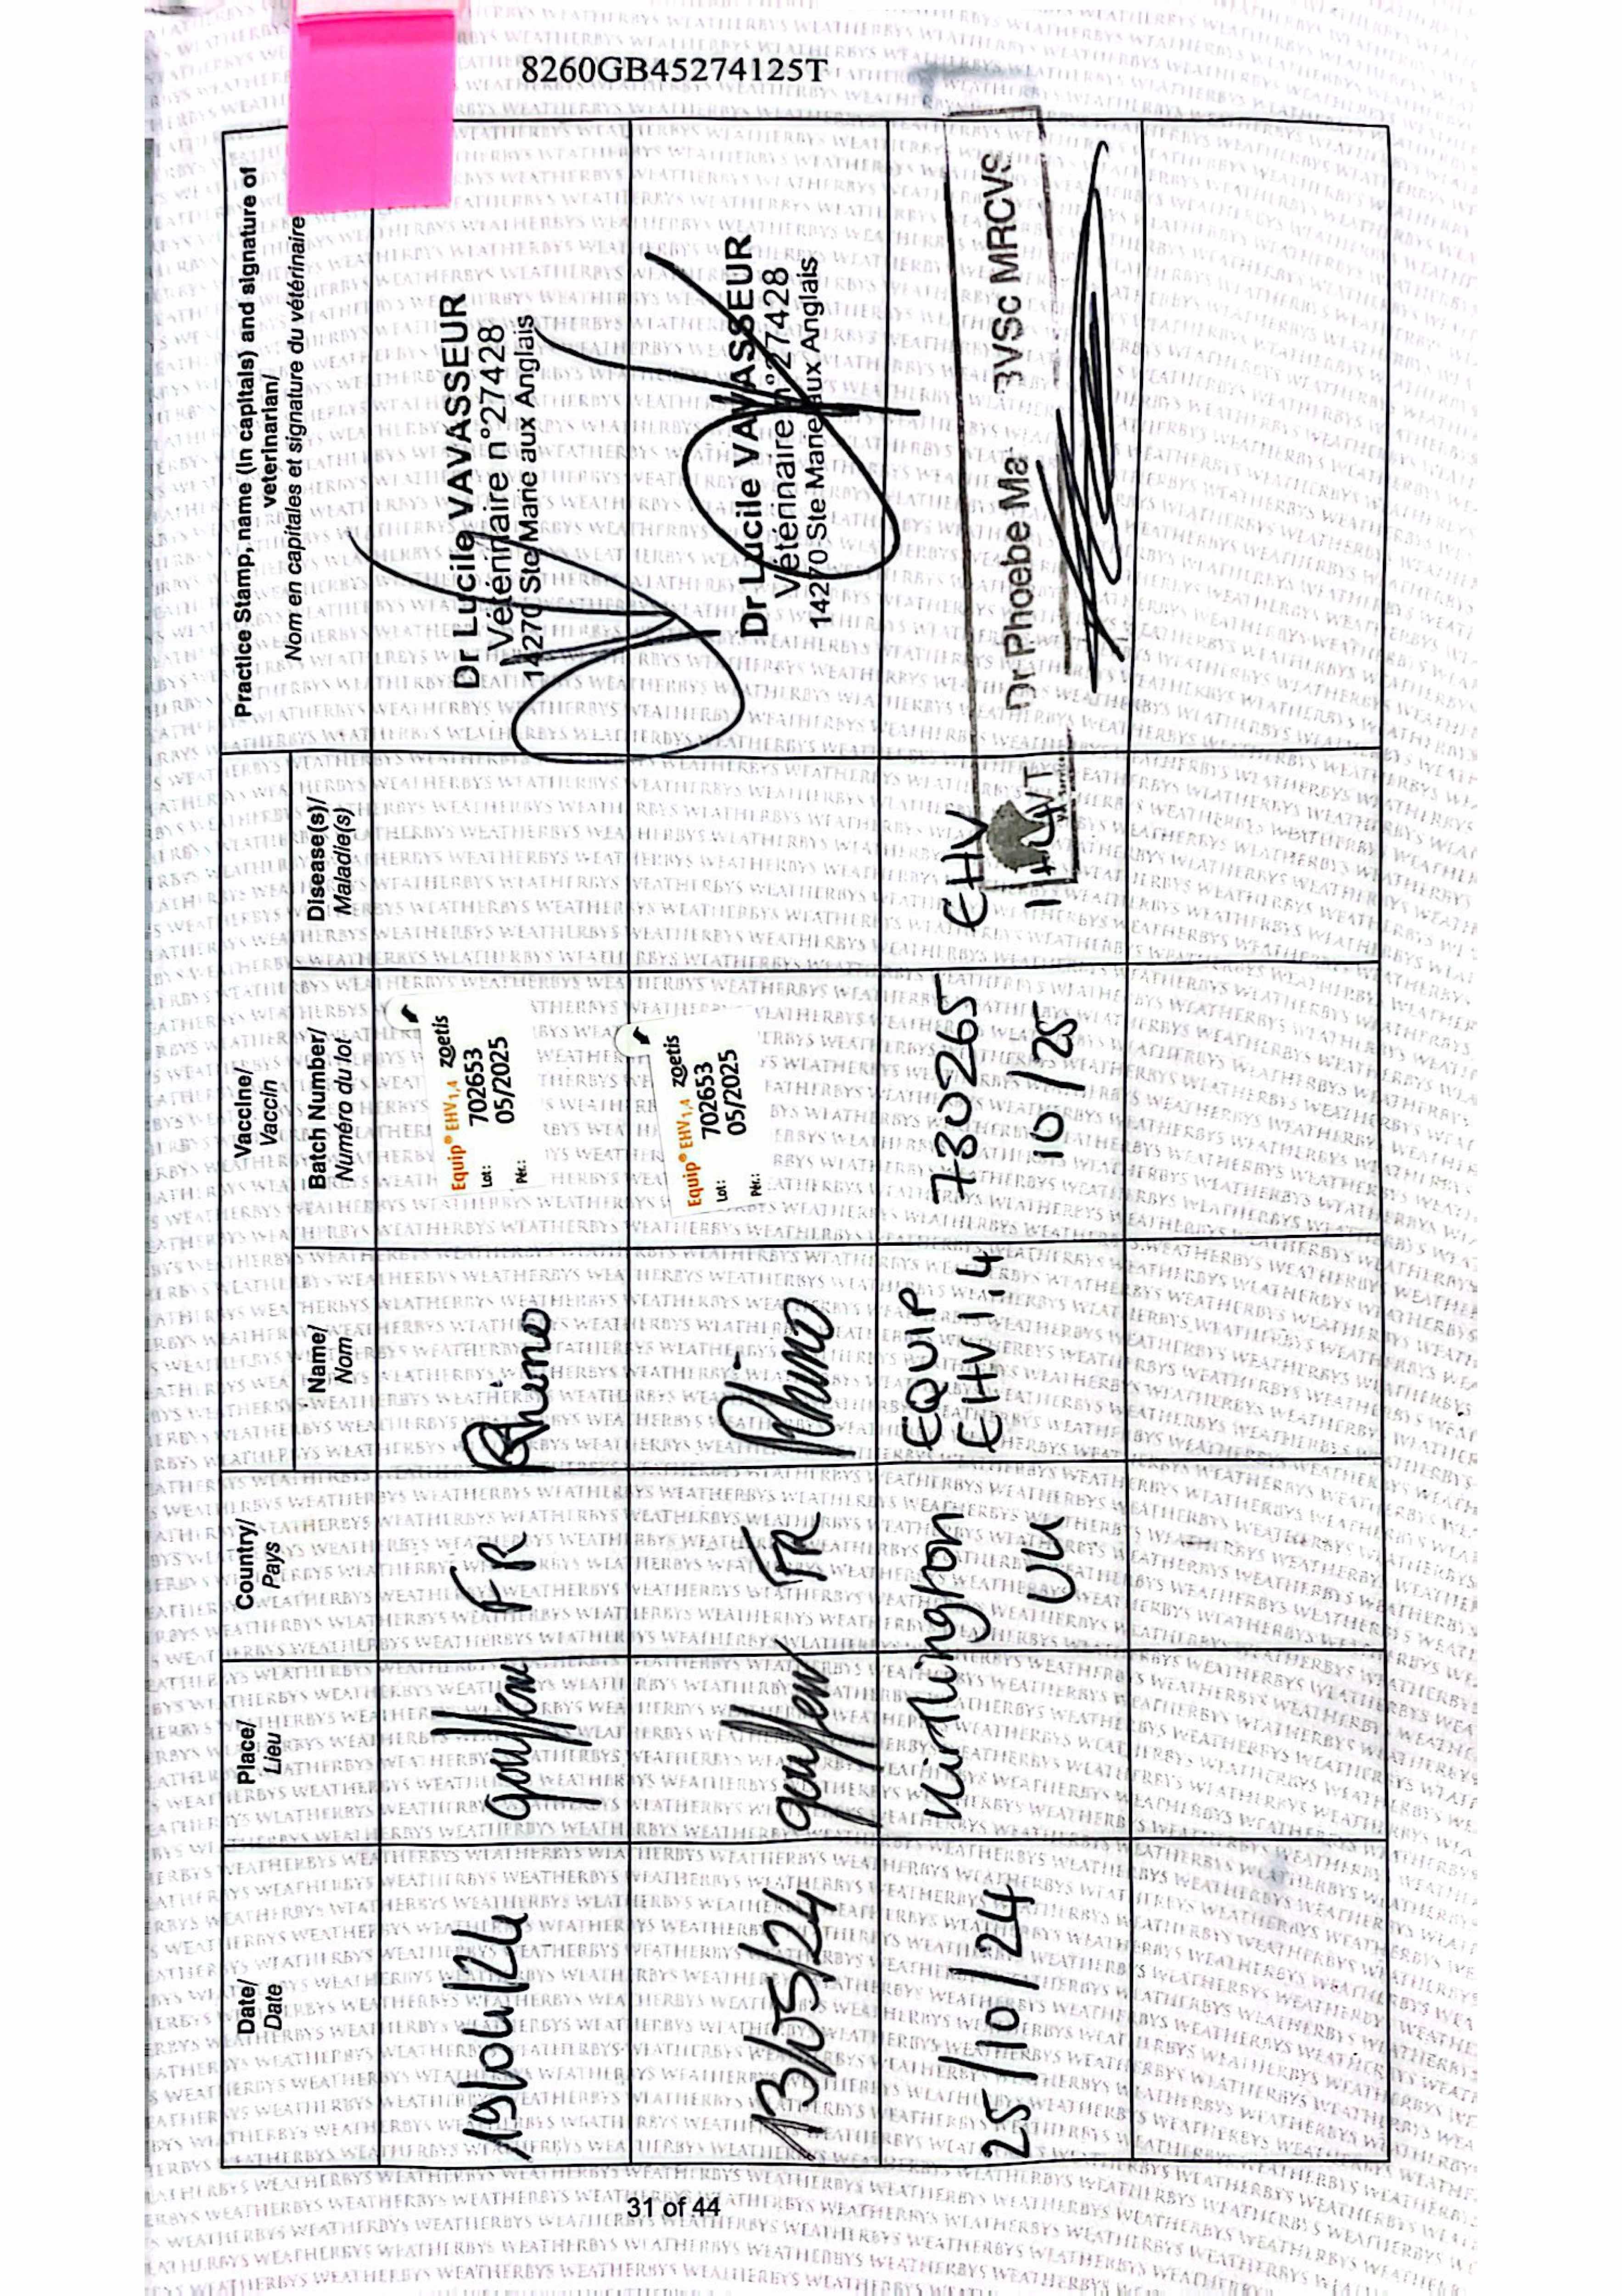 8260GB45274125T
Date/
Date
Place/
Lieu
Country/
Pays
Vaccine/
Vaccin
Name/
Nom
Batch Number/
Numéro du lot
Disease(s)/
Maladie(s)
Practice Stamp, name (in capitals) and signature of
veterinarian/
Nom en capitales et signature du vétérinaire
19/04/24
FR
Rhino
Equip® EHV1,4 zoetis
Lot: 702653
Per.: 05/2025
Dr Lucile VAVASSEUR
Vétérinaire n°27428
14270 Ste Marie aux Anglais
13/05/24
FR
Rhino
Equip® EHV1,4 zoetis
Lot: 702653
Per.: 05/2025
Dr Lucile VAVASSEUR
Vétérinaire n°27428
14270 Ste Marie aux Anglais
25/10/24
Kirtlington
UK
EQUIP
EHV1.4
730265
10/25
EHV
Dr Phoebe Ma BVSc MRCVS
31 of 44